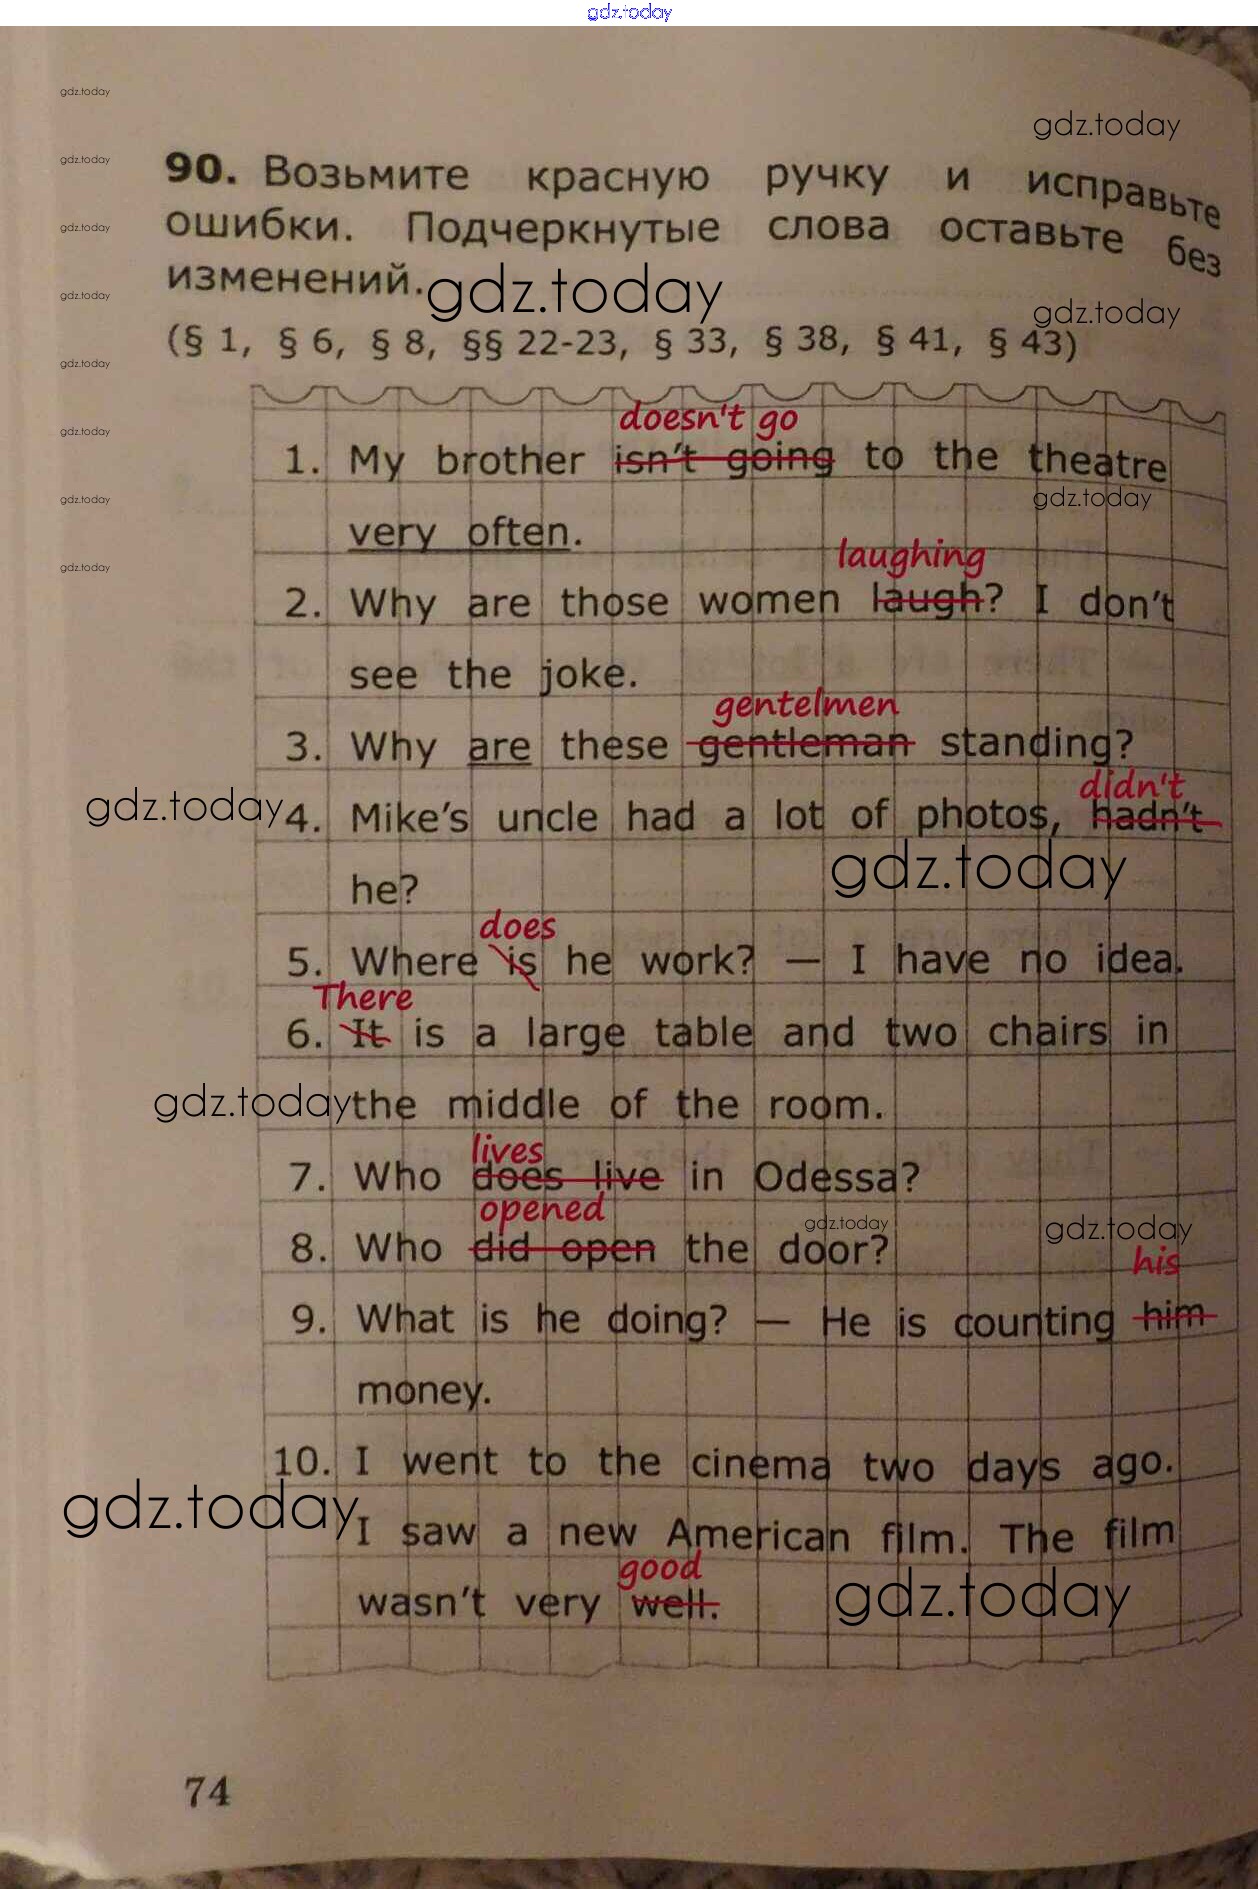 gdz.today
gdz.today
gdz.today
gdz.today
90. Возьмите красную ручку и исправьте
gdz.today
ошибки. Подчеркнутые слова оставьте без
изменений.
gdz.today
gdz.today
gdz.today
(§ 1, § 6, § 8, §§ 22-23, § 33, § 38, § 41, § 43)
gdz.today
doesn't go
gdz.today
1. My brother isn't going to the theatre
gdz.today
gdz.today
very often.
laughing
gdz.today
2. Why are those women laugh? I don't
see the joke.
gentelmen
3. Why are these gentleman standing?
didn't
gdz.today
4. Mike's uncle had a lot of photos, hadn't
gdz.today
he?
does
5. Where is he work? — I have no idea.
There
6. It is a large table and two chairs in
gdz.today
the middle of the room.
lives
7. Who does live in Odessa?
opened
gdz.today
gdz.today
8. Who did open the door?
his
9. What is he doing? — He is counting him
money.
10. I went to the cinema two days ago.
gdz.today
I saw a new American film. The film
good
wasn't very well.
gdz.today
74